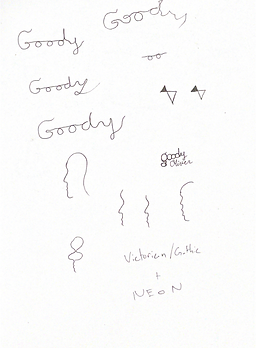 Goody
Goody
Goody
Goody
Goody
& Oliver
Victorian/Gothic
+
NEON